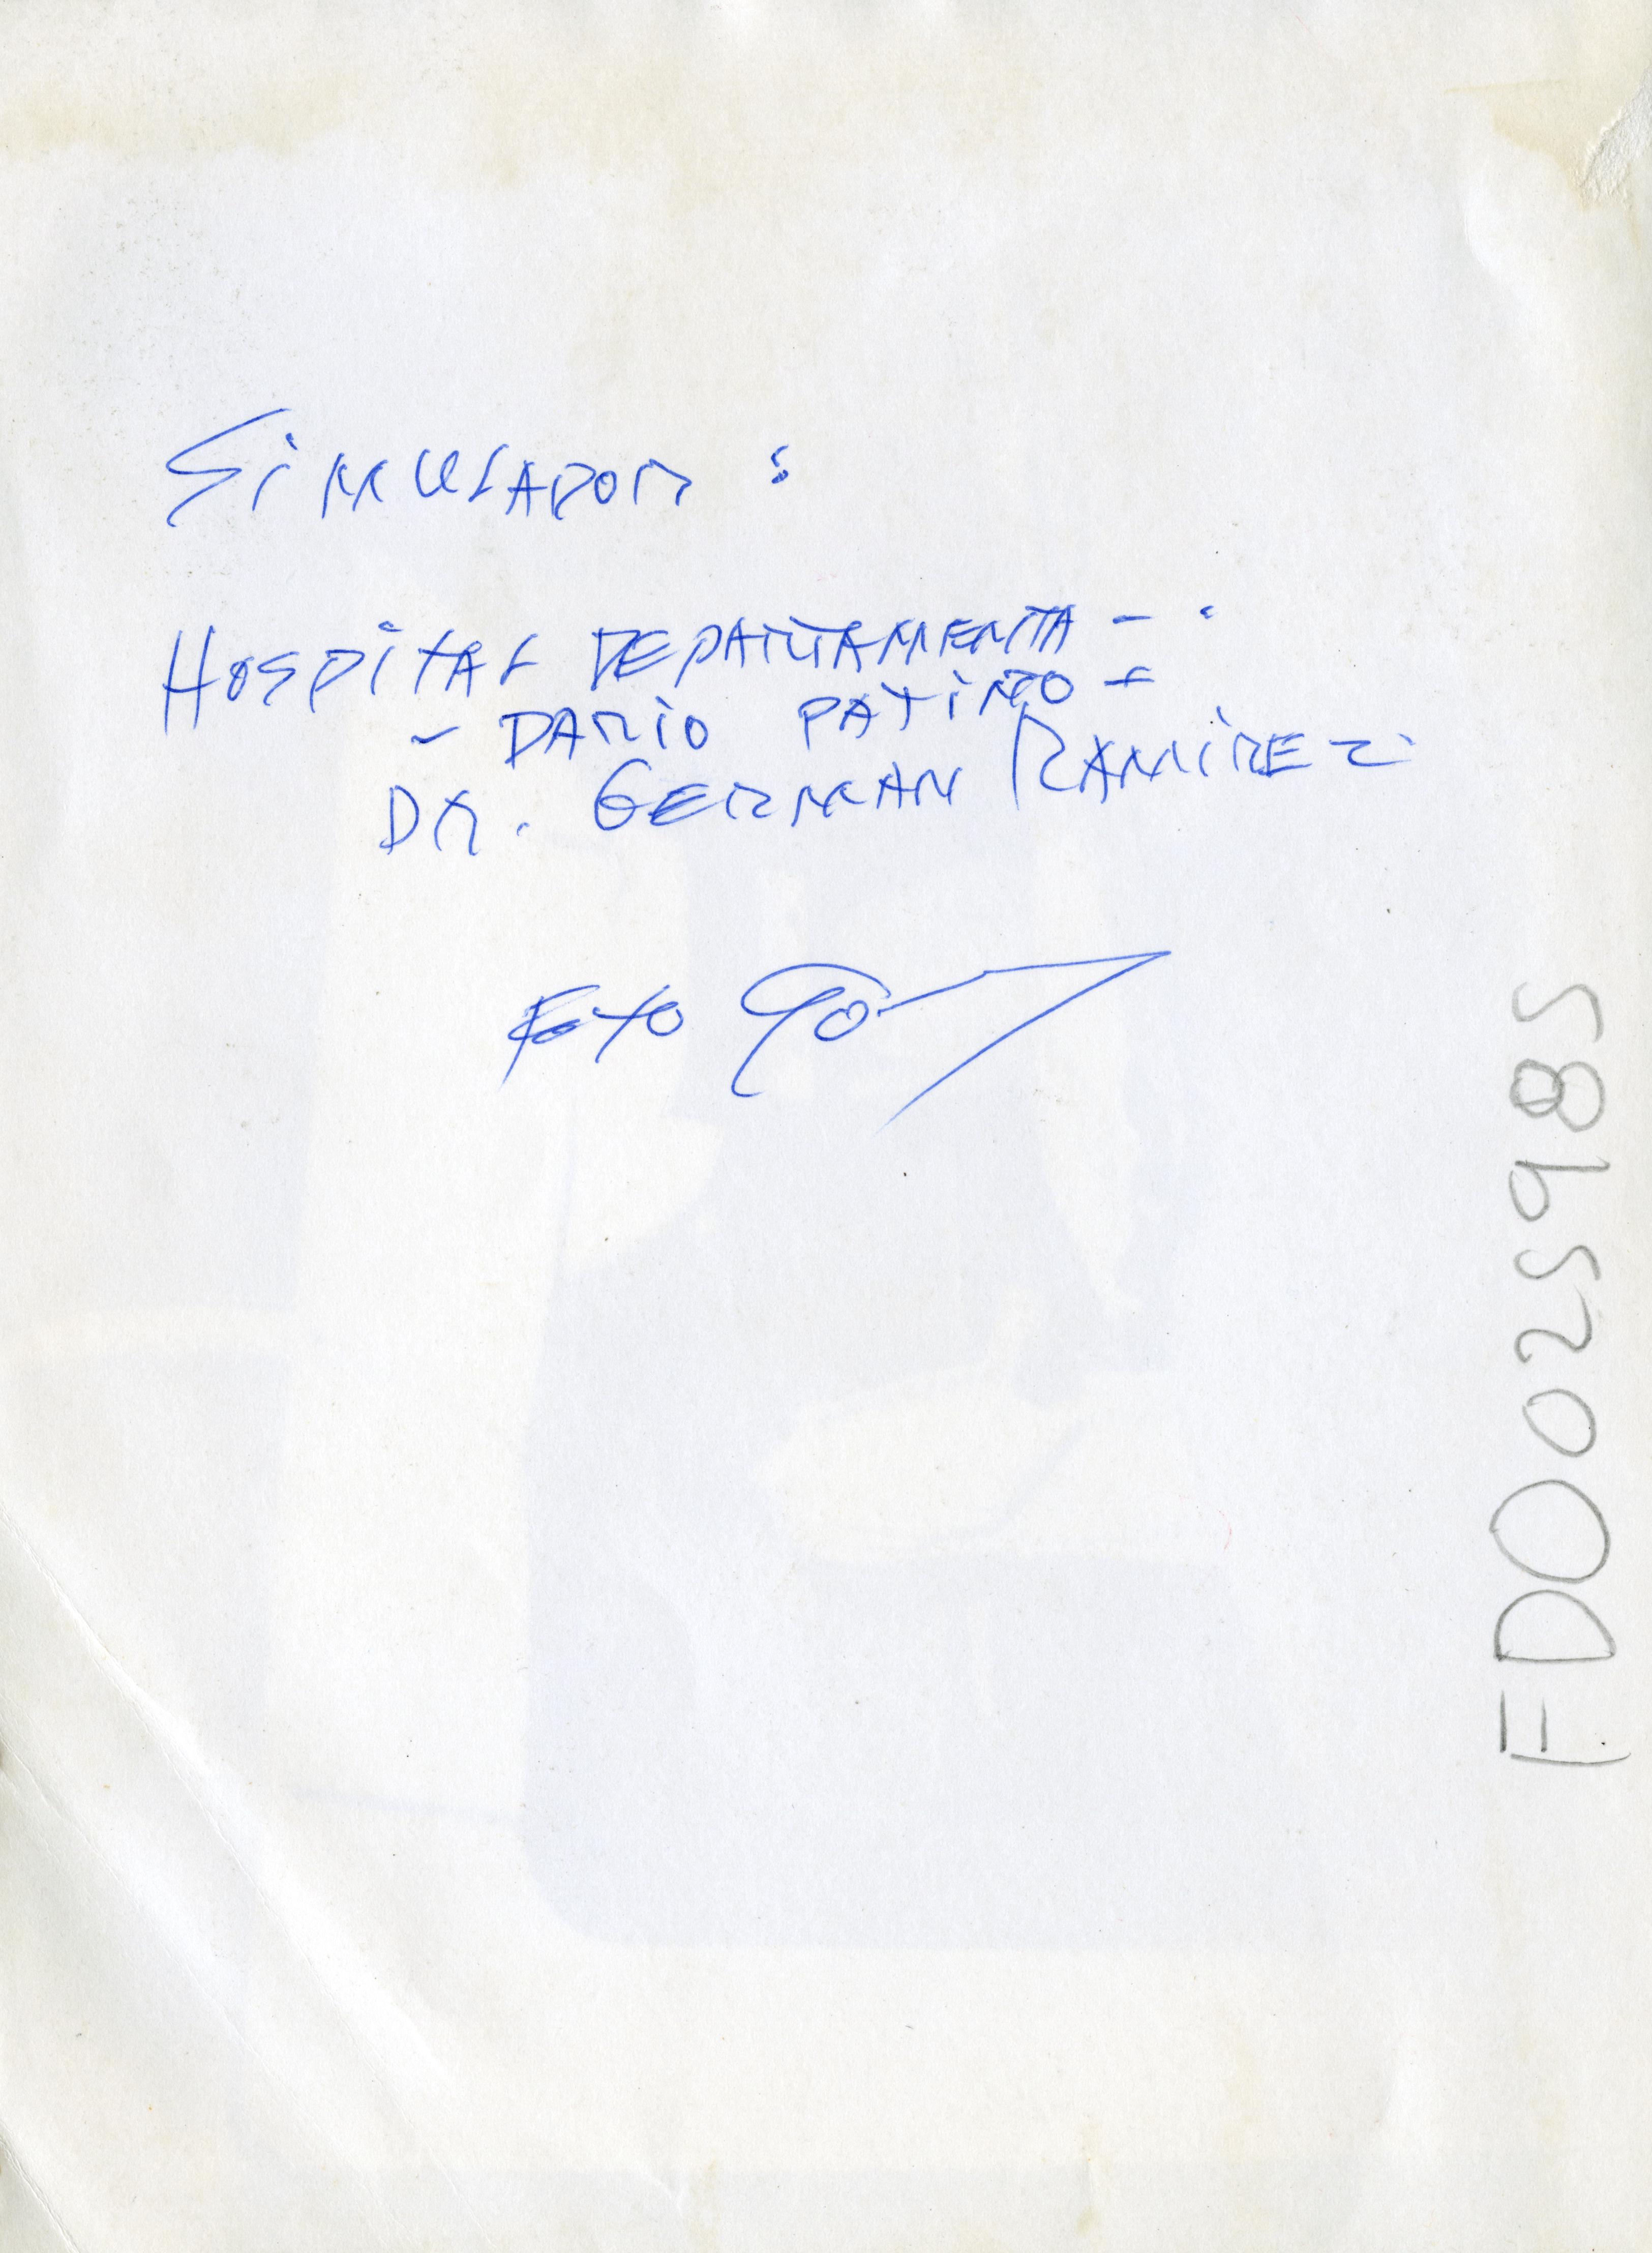 SIMULADOR :
HOSPITAL DEPARTAMENTA - .
- DARIO PATIÑO -
DR. GERMAN RAMIREZ
FOTO
FD0025985